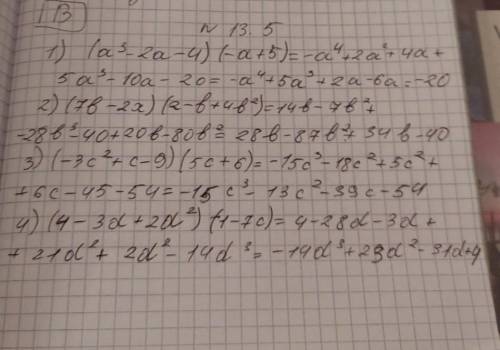 1B
N 13. 5
1) (a³-2a-4) (-a+5)=-a⁴+2a²+4a+
5a³-10a-20=-a⁴+5a³+2a-6a=-20
2) (7b-2x) (2-b+4b²)=14b-7b²+
-28b³-40+20b-80b²=28b-87b²+34b-40
3) (-3c²+c-9) (5c+6)=-15c³-18c²+5c²+
+6c-45-54=-15c³-13c²-39c-54
4) (4-3d+2d²) (1-7c)=4-28d-3d+
+21d²+2d²-14d³=-14d³+23d²-31d+4